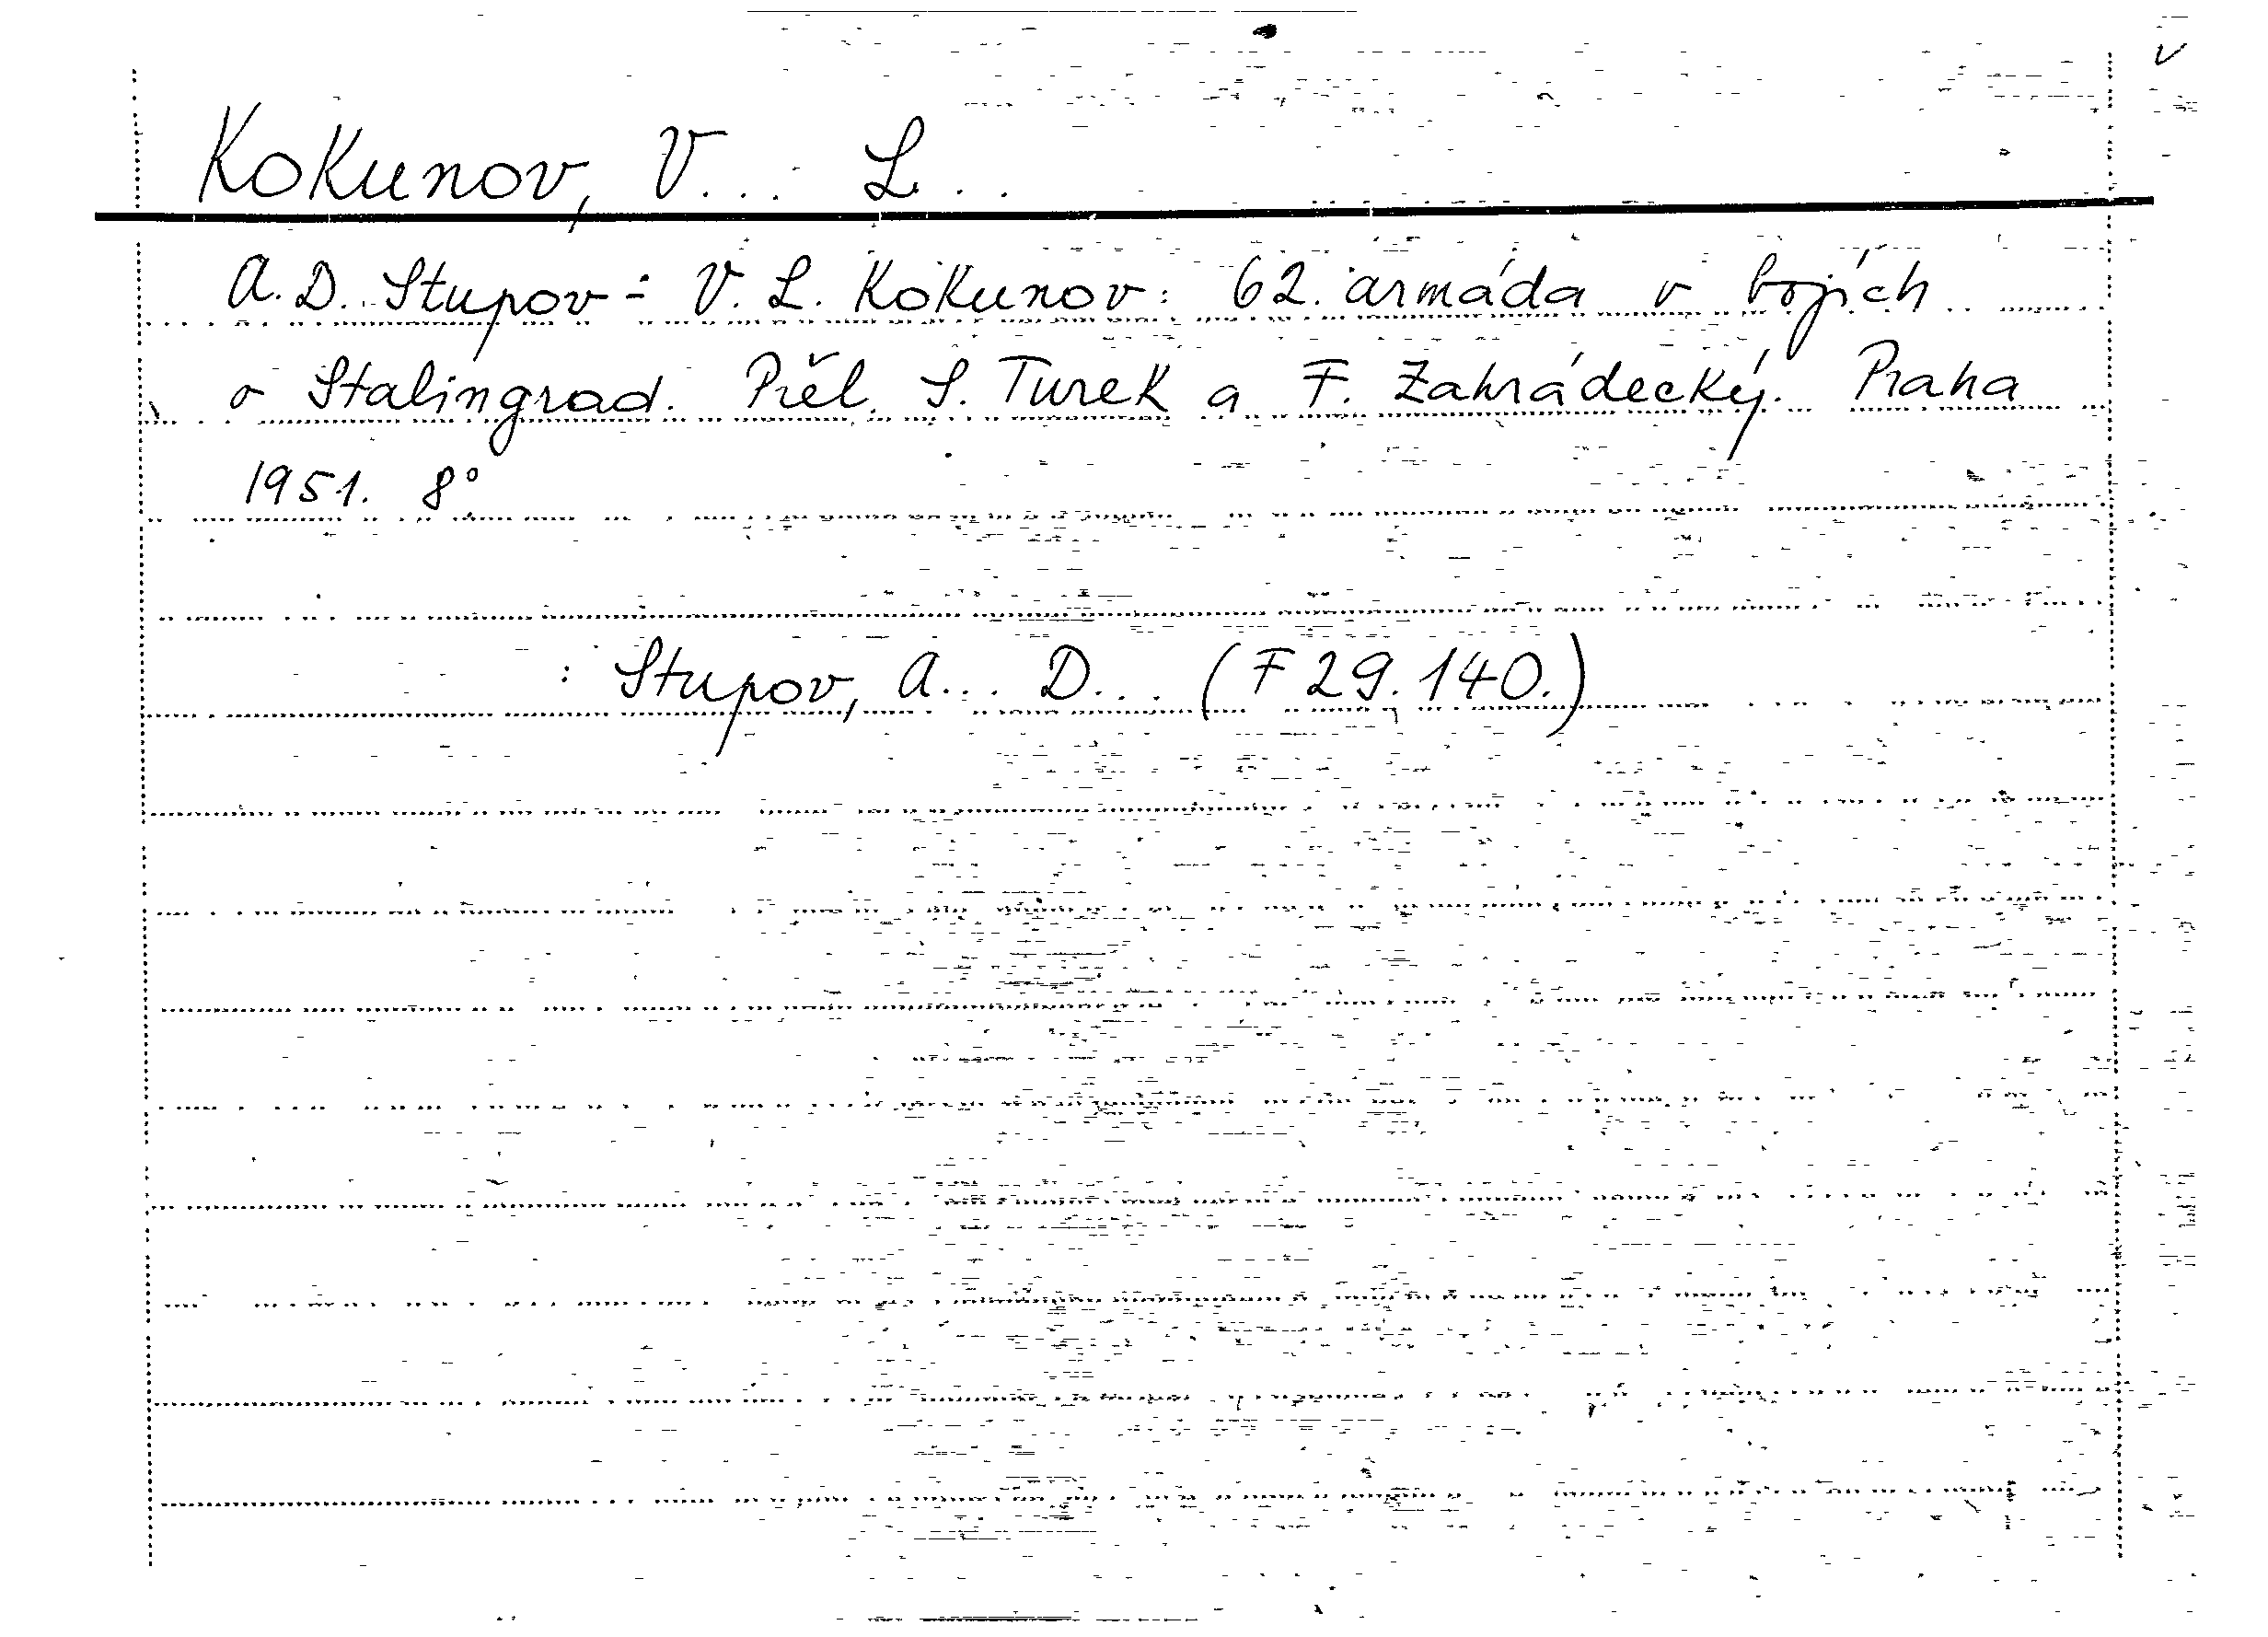 Kokunov, V... L...
A.D. Stupov - V. L. Kokunov: 62. armáda v bojích
o Stalingrad. Přel. S. Turek a F. Zahrádecký. Praha
1951. 8°
: Stupov, A... D... (F 29.140.)